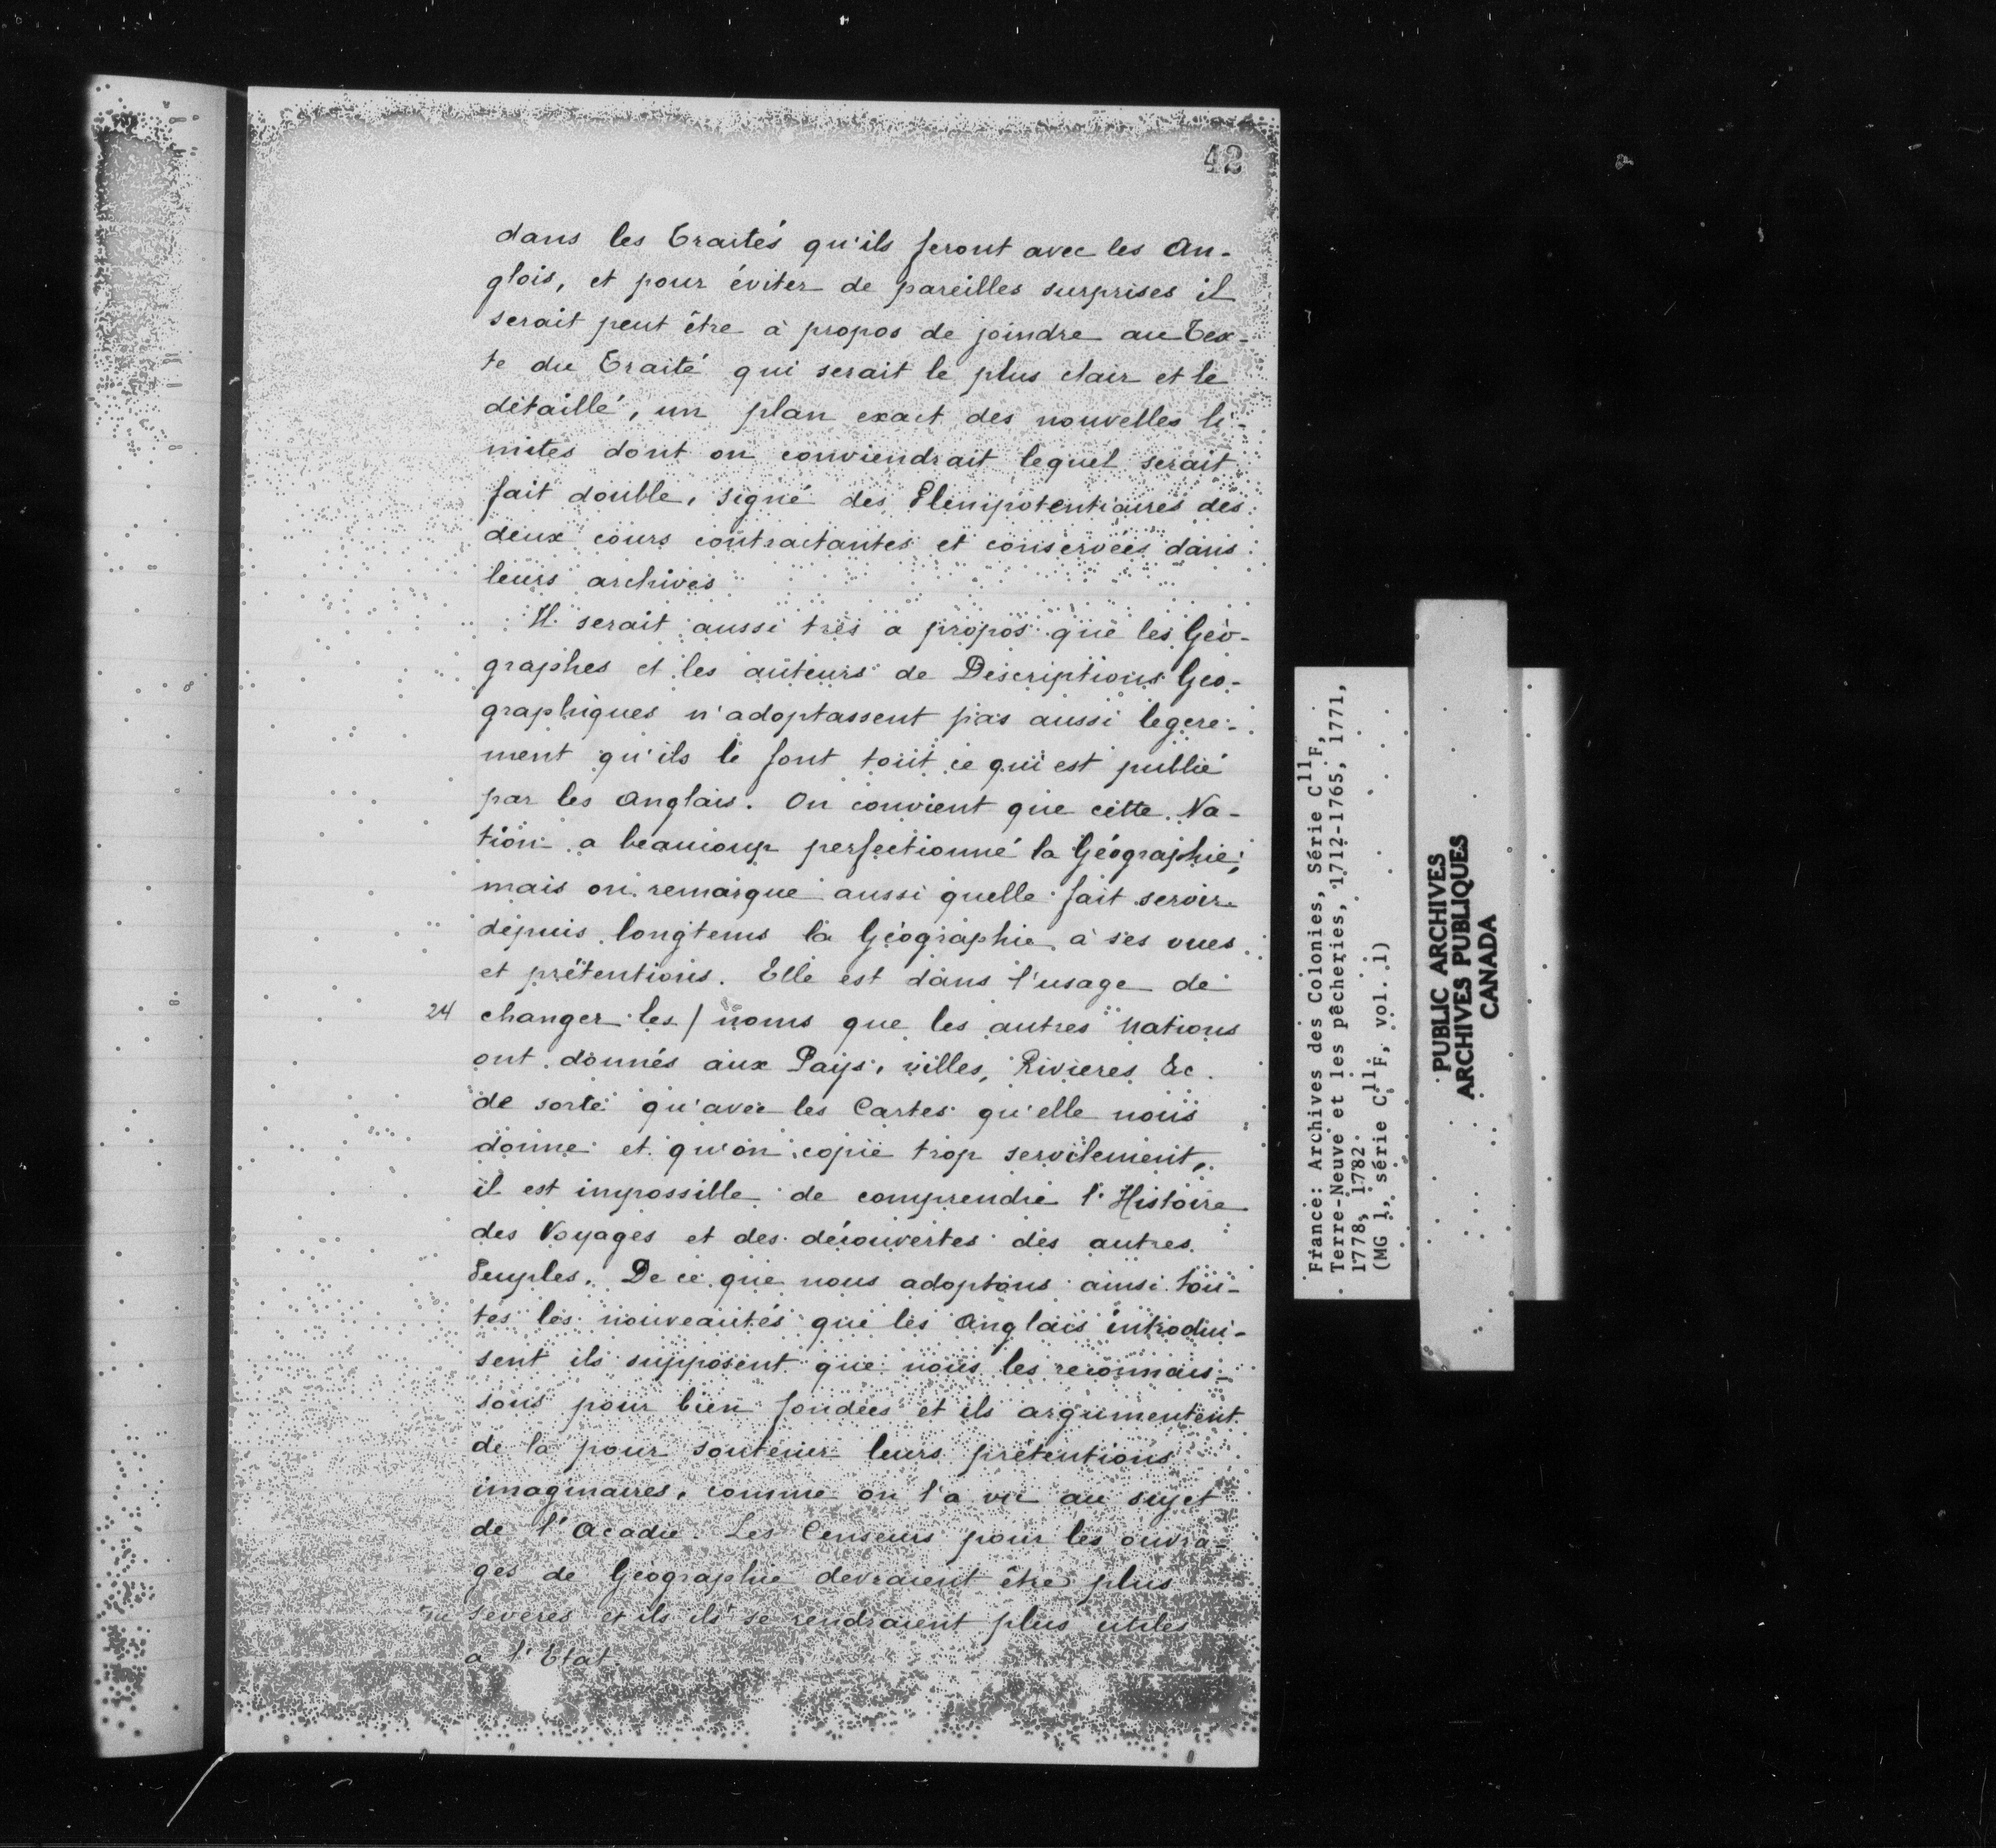 42
dans les Traités qu'ils feront avec les An-
glois, et pour éviter de pareilles surprises il
serait peut être à propos de joindre au Tex-
te du Traité qui serait le plus clair et le
détaillé, un plan exact des nouvelles li-
mites dont on conviendrait lequel serait
fait double, signé des Plenipotentiaires des
deux cours contractantes et conservées dans
leurs archives
Il serait aussi très a propos que les Géo-
graphes et les auteurs de Descriptions Geo-
graphiques n'adoptassent pas aussi legere-
ment qu'ils le font tout ce qui est publié
par les Anglais. On convient que cette Na-
tion a beaucoup perfectionné la Géographie;
mais on remarque aussi quelle fait servir
depuis longtems la Géographie à ses vues
et prétentions. Elle est dans l'usage de
24 changer les / noms que les autres Nations
ont donnés aux Pays, villes, Rivieres &c.
de sorte qu'avec les Cartes qu'elle nous
donne et qu'on copie trop servilement,
il est impossible de comprendre l'Histoire
des Voyages et des découvertes des autres
Peuples. De ce que nous adoptons ainsi tou-
tes les nouveautés que les Anglais introdui-
sent ils supposent que nous les reconnais-
sons pour bien fondées et ils argumentent
de la pour soutenir leurs prétentions
imaginaires, comme on l'a vu au sujet
de l'Acadie. Les Censeurs pour les ouvra-
ges de Géographie devraient être plus
severes et ils ils se rendraient plus utiles
a l'Etat.
France: Archives des Colonies, Série C11F,
Terre-Neuve et les pêcheries, 1712-1765, 1771,
1778, 1782.
(MG 1, série C11F, vol. 1)
PUBLIC ARCHIVES
ARCHIVES PUBLIQUES
CANADA